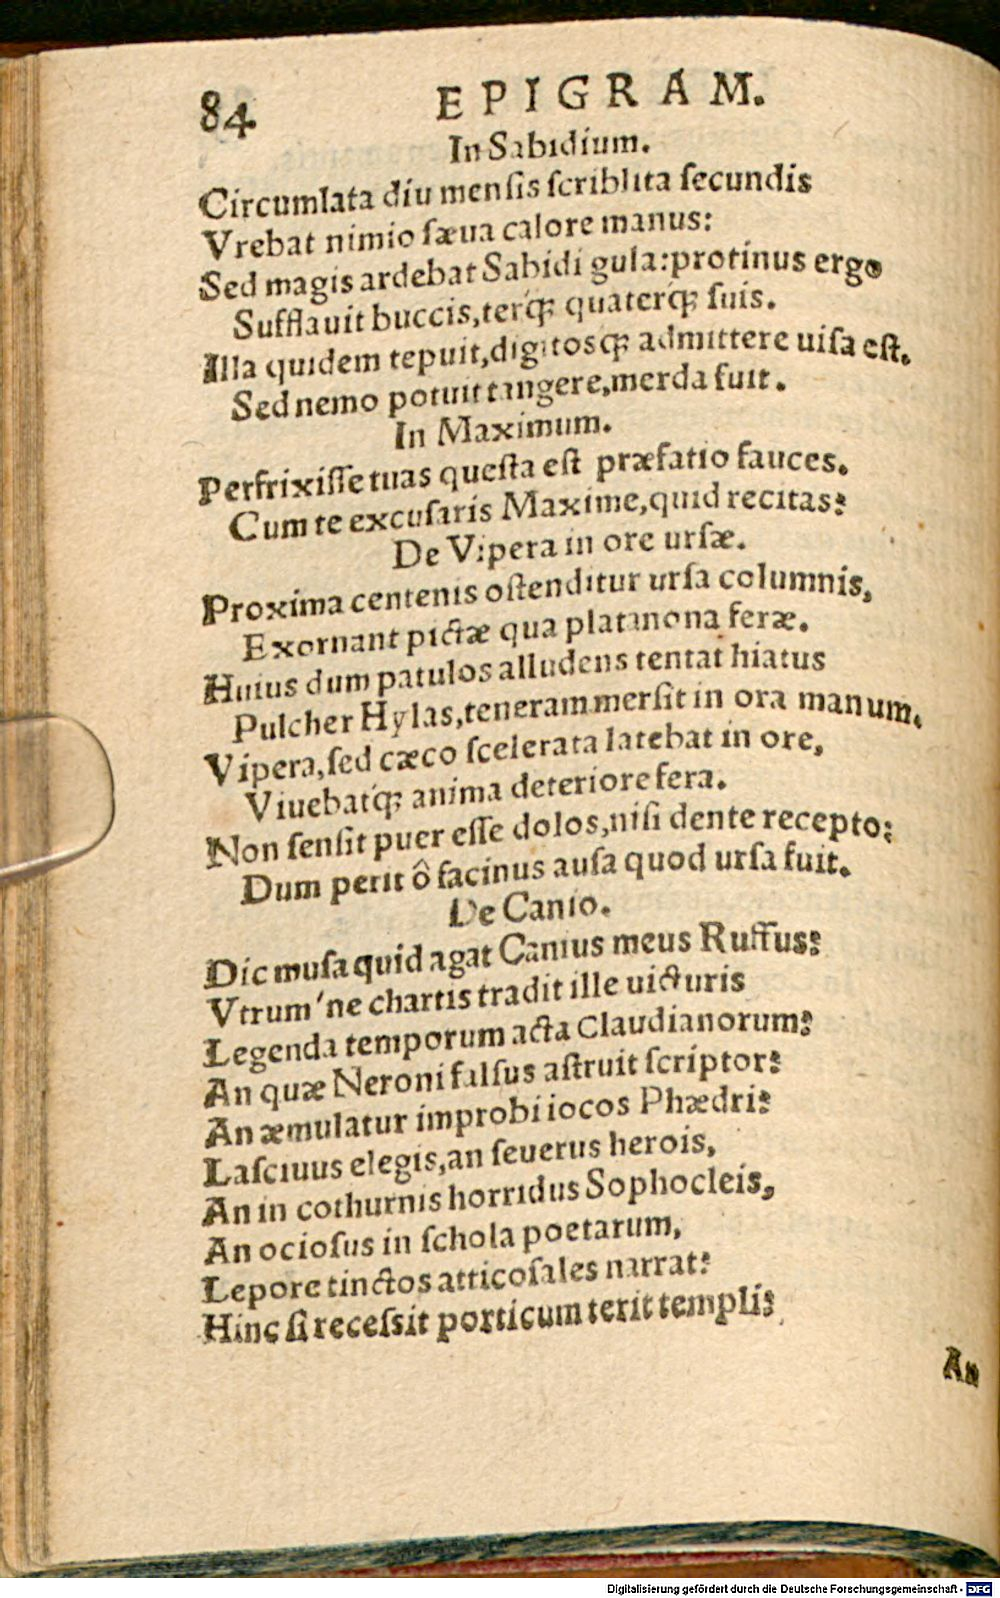 84 EPIGRAM.
In Sabidium.
Circumlata diu mensis scriblita secundis
Vrebat nimio sæua calore manus:
Sed magis ardebat Sabidi gula: protinus ergo
Sufflauit buccis, terq́; quaterq́; suis.
Illa quidem tepuit, digitosq; admittere uisa est,
Sed nemo potuit tangere, merda fuit.
In Maximum.
Perfrixisse tuas questa est præfatio fauces.
Cum te excusaris Maxime, quid recitas?
De Vipera in ore ursæ.
Proxima centenis ostenditur ursa columnis,
Exornant pictæ qua platanona feræ.
Huius dum patulos alludens tentat hiatus
Pulcher Hylas, teneram mersit in ora manum.
Vipera, sed cæco scelerata latebat in ore,
Viuebatq́; anima deteriore fera.
Non sensit puer esse dolos, nisi dente recepto:
Dum perit ô facinus ausa quod ursa fuit.
De Canio.
Dic musa quid agat Canius meus Ruffus?
Vtrum'ne chartis tradit ille uicturis
Legenda temporum acta Claudianorum?
An quæ Neroni falsus astruit scriptor?
An æmulatur improbi iocos Phædri?
Lasciuus elegis, an seuerus herois,
An in cothurnis horridus Sophocleis,
An ociosus in schola poetarum,
Lepore tinctos atticosales narrat?
Hinc si recessit porticum terit templi?
An
Digitalisierung gefördert durch die Deutsche Forschungsgemeinschaft - DFG